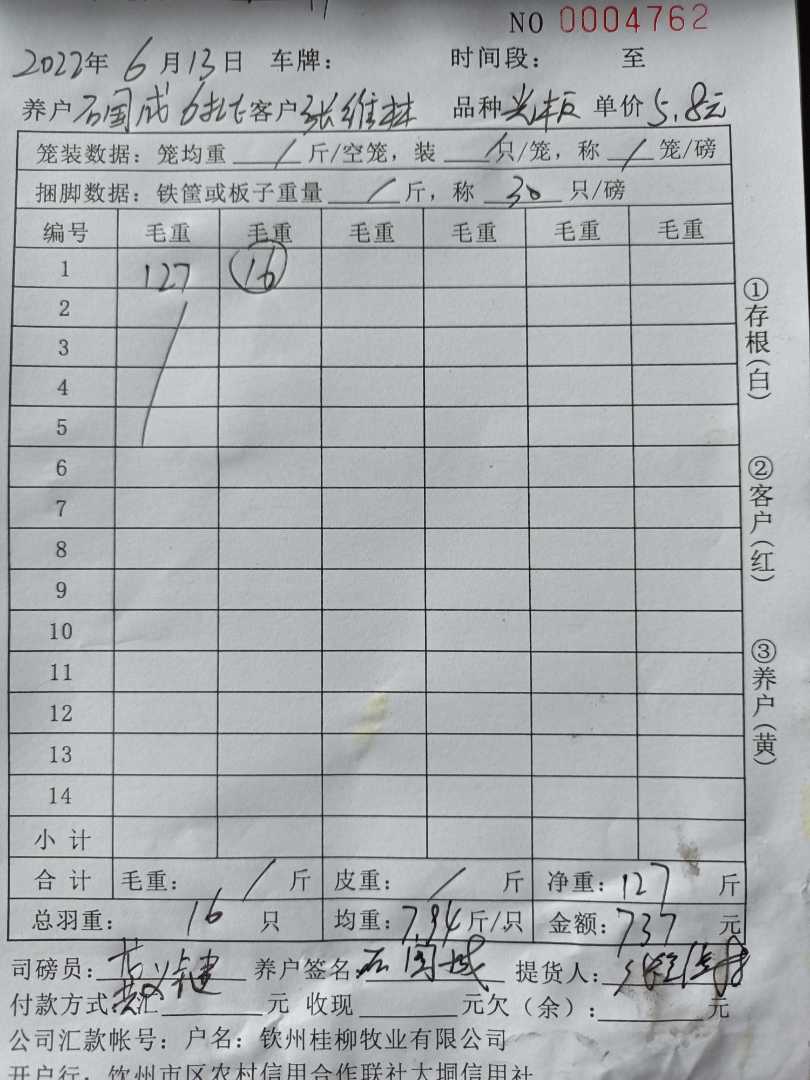 NO 0004762
2022年 6月13日 车牌： 时间段： 至
养户 石国成 6批 客户 张维林 品种 单价 5.8元
笼装数据：笼均重 / 斤/空笼，装 / 只/笼，称 / 笼/磅
捆脚数据：铁筐或板子重量 / 斤，称 30 只/磅
编号 毛重 毛重 毛重 毛重 毛重 毛重
1 127 16
2
3
4
5
6
7
8
9
10
11
12
13
14
小 计
合 计 毛重： / 斤 皮重： / 斤 净重：127 斤
总羽重： 16 只 均重：7.94 斤/只 金额：737 元
司磅员： 养户签名 石国成 提货人：
付款方式：汇 元 收现 元欠（余）： 元
公司汇款帐号：户名：钦州桂柳牧业有限公司
开户行：钦州市区农村信用合作联社大垌信用社
①存根(白)
②客户(红)
③养户(黄)